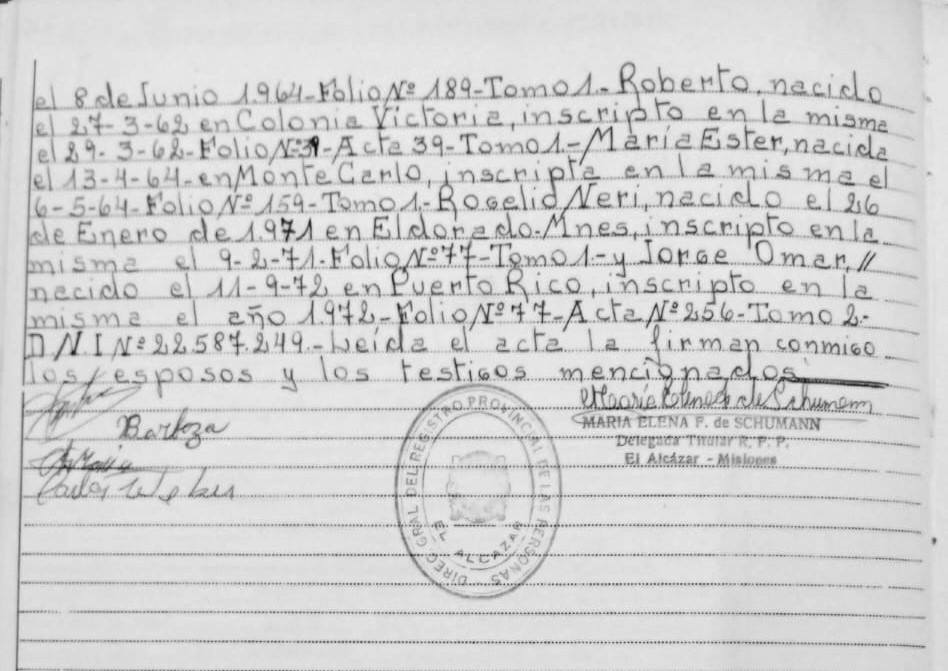 el 8 de Junio 1.964-Folio Nº 189-Tomo 1.- Roberto, nacido
el 27-3-62 en Colonia Victoria, inscripto en la misma
el 29-3-62-Folio Nº 39-Acta 39-Tomo 1.-María Ester, nacida
el 13-4-64-en Monte Carlo, inscripta en la misma el
6-5-64-Folio Nº 159-Tomo 1.-Rogelio Neri, nacido el 26
de Enero de 1971 en Eldorado-Mnes, inscripto en la
misma el 9-2-71-Folio Nº 77-Tomo 1.-y Jorge Omar, //
nacido el 11-9-72 en Puerto Rico, inscripto en la
misma el año 1.972-Folio Nº 77-Acta Nº 256-Tomo 2.-
D.N.I Nº 22.587.249.-Leída el acta la firman conmigo
los esposos y los testigos mencionados
María Elena de Schumann
Barboza
MARIA ELENA F. de SCHUMANN
Delegada Titular R. P. P.
El Alcázar - Misiones
Carlos
DIREC. GRAL. DEL REGISTRO PROVINCIAL DE LAS PERSONAS
EL ALCAZAR